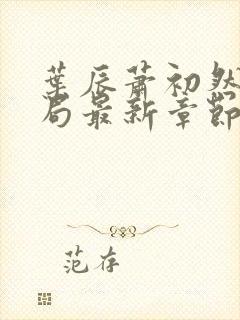 葉辰蕭初然
局最新章節
范存